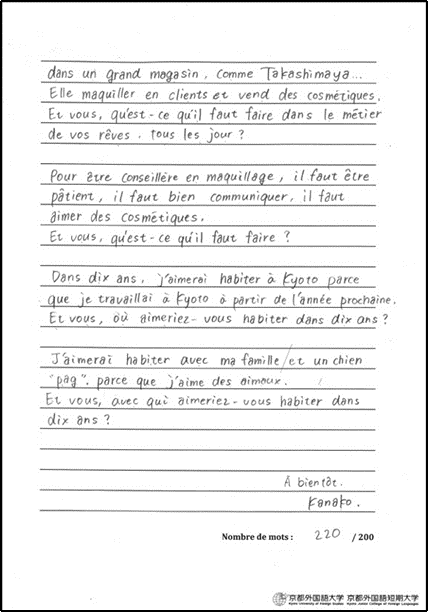 dans un grand magasin, comme Takashimaya...
Elle maquiller en clients et vend des cosmétiques.
Et vous, qu'est-ce qu'il faut faire dans le métier
de vos rêves. tous les jour ?
Pour être conseillère en maquillage, il faut être
pâtient, il faut bien communiquer, il faut
aimer des cosmétiques.
Et vous, qu'est-ce qu'il faut faire ?
Dans dix ans, j'aimerai habiter à Kyoto parce
que je travaillai à Kyoto à partir de l'année prochaine.
Et vous, où aimeriez-vous habiter dans dix ans ?
J'aimerai habiter avec ma famille et un chien
"pag". parce que j'aime des aimaux.
Et vous, avec qui aimeriez-vous habiter dans
dix ans ?
A bientôt.
Kanako.
Nombre de mots : 220 / 200
京都外国語大学 京都外国語短期大学
Kyoto University of Foreign Studies Kyoto Junior College of Foreign Languages